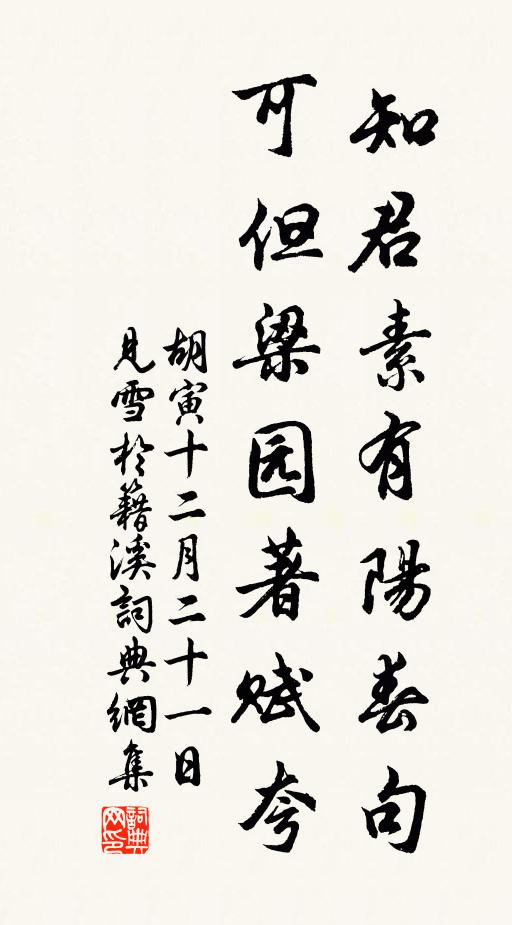 知君素有陽春句
可但梁园著赋夸
胡寅十二月二十一日
見雪於籍溪詞典網集
詞典网印